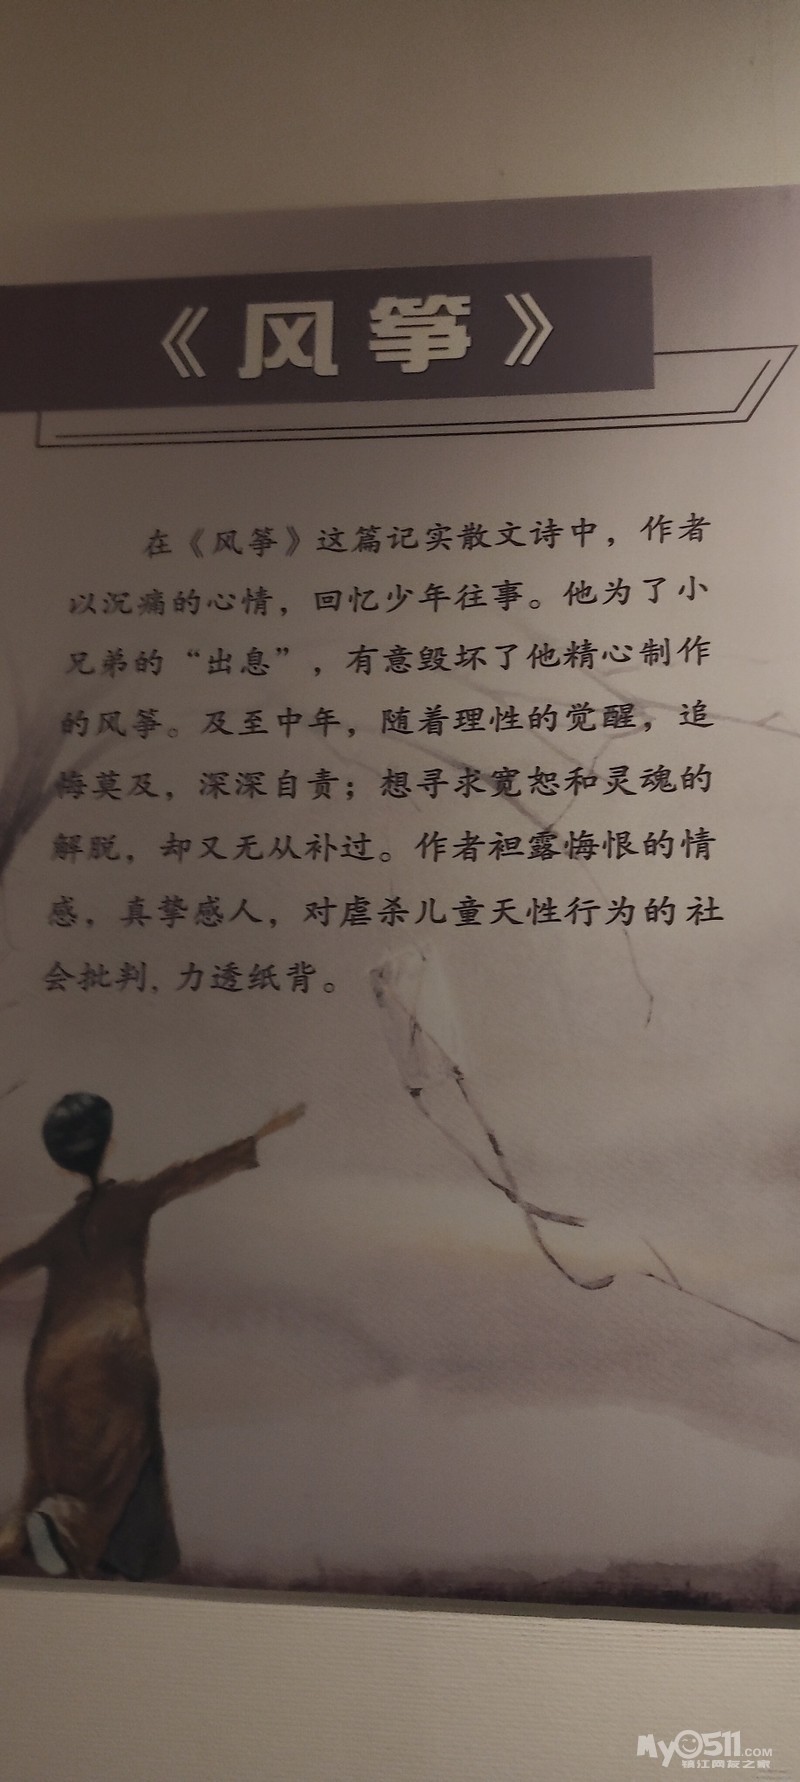 《风筝》
在《风筝》这篇记实散文诗中，作者
以沉痛的心情，回忆少年往事。他为了小
兄弟的“出息”，有意毁坏了他精心制作
的风筝。及至中年，随着理性的觉醒，追
悔莫及，深深自责；想寻求宽恕和灵魂的
解脱，却又无从补过。作者袒露悔恨的情
感，真挚感人，对虐杀儿童天性行为的社
会批判，力透纸背。
My0511.COM
镇江网友之家